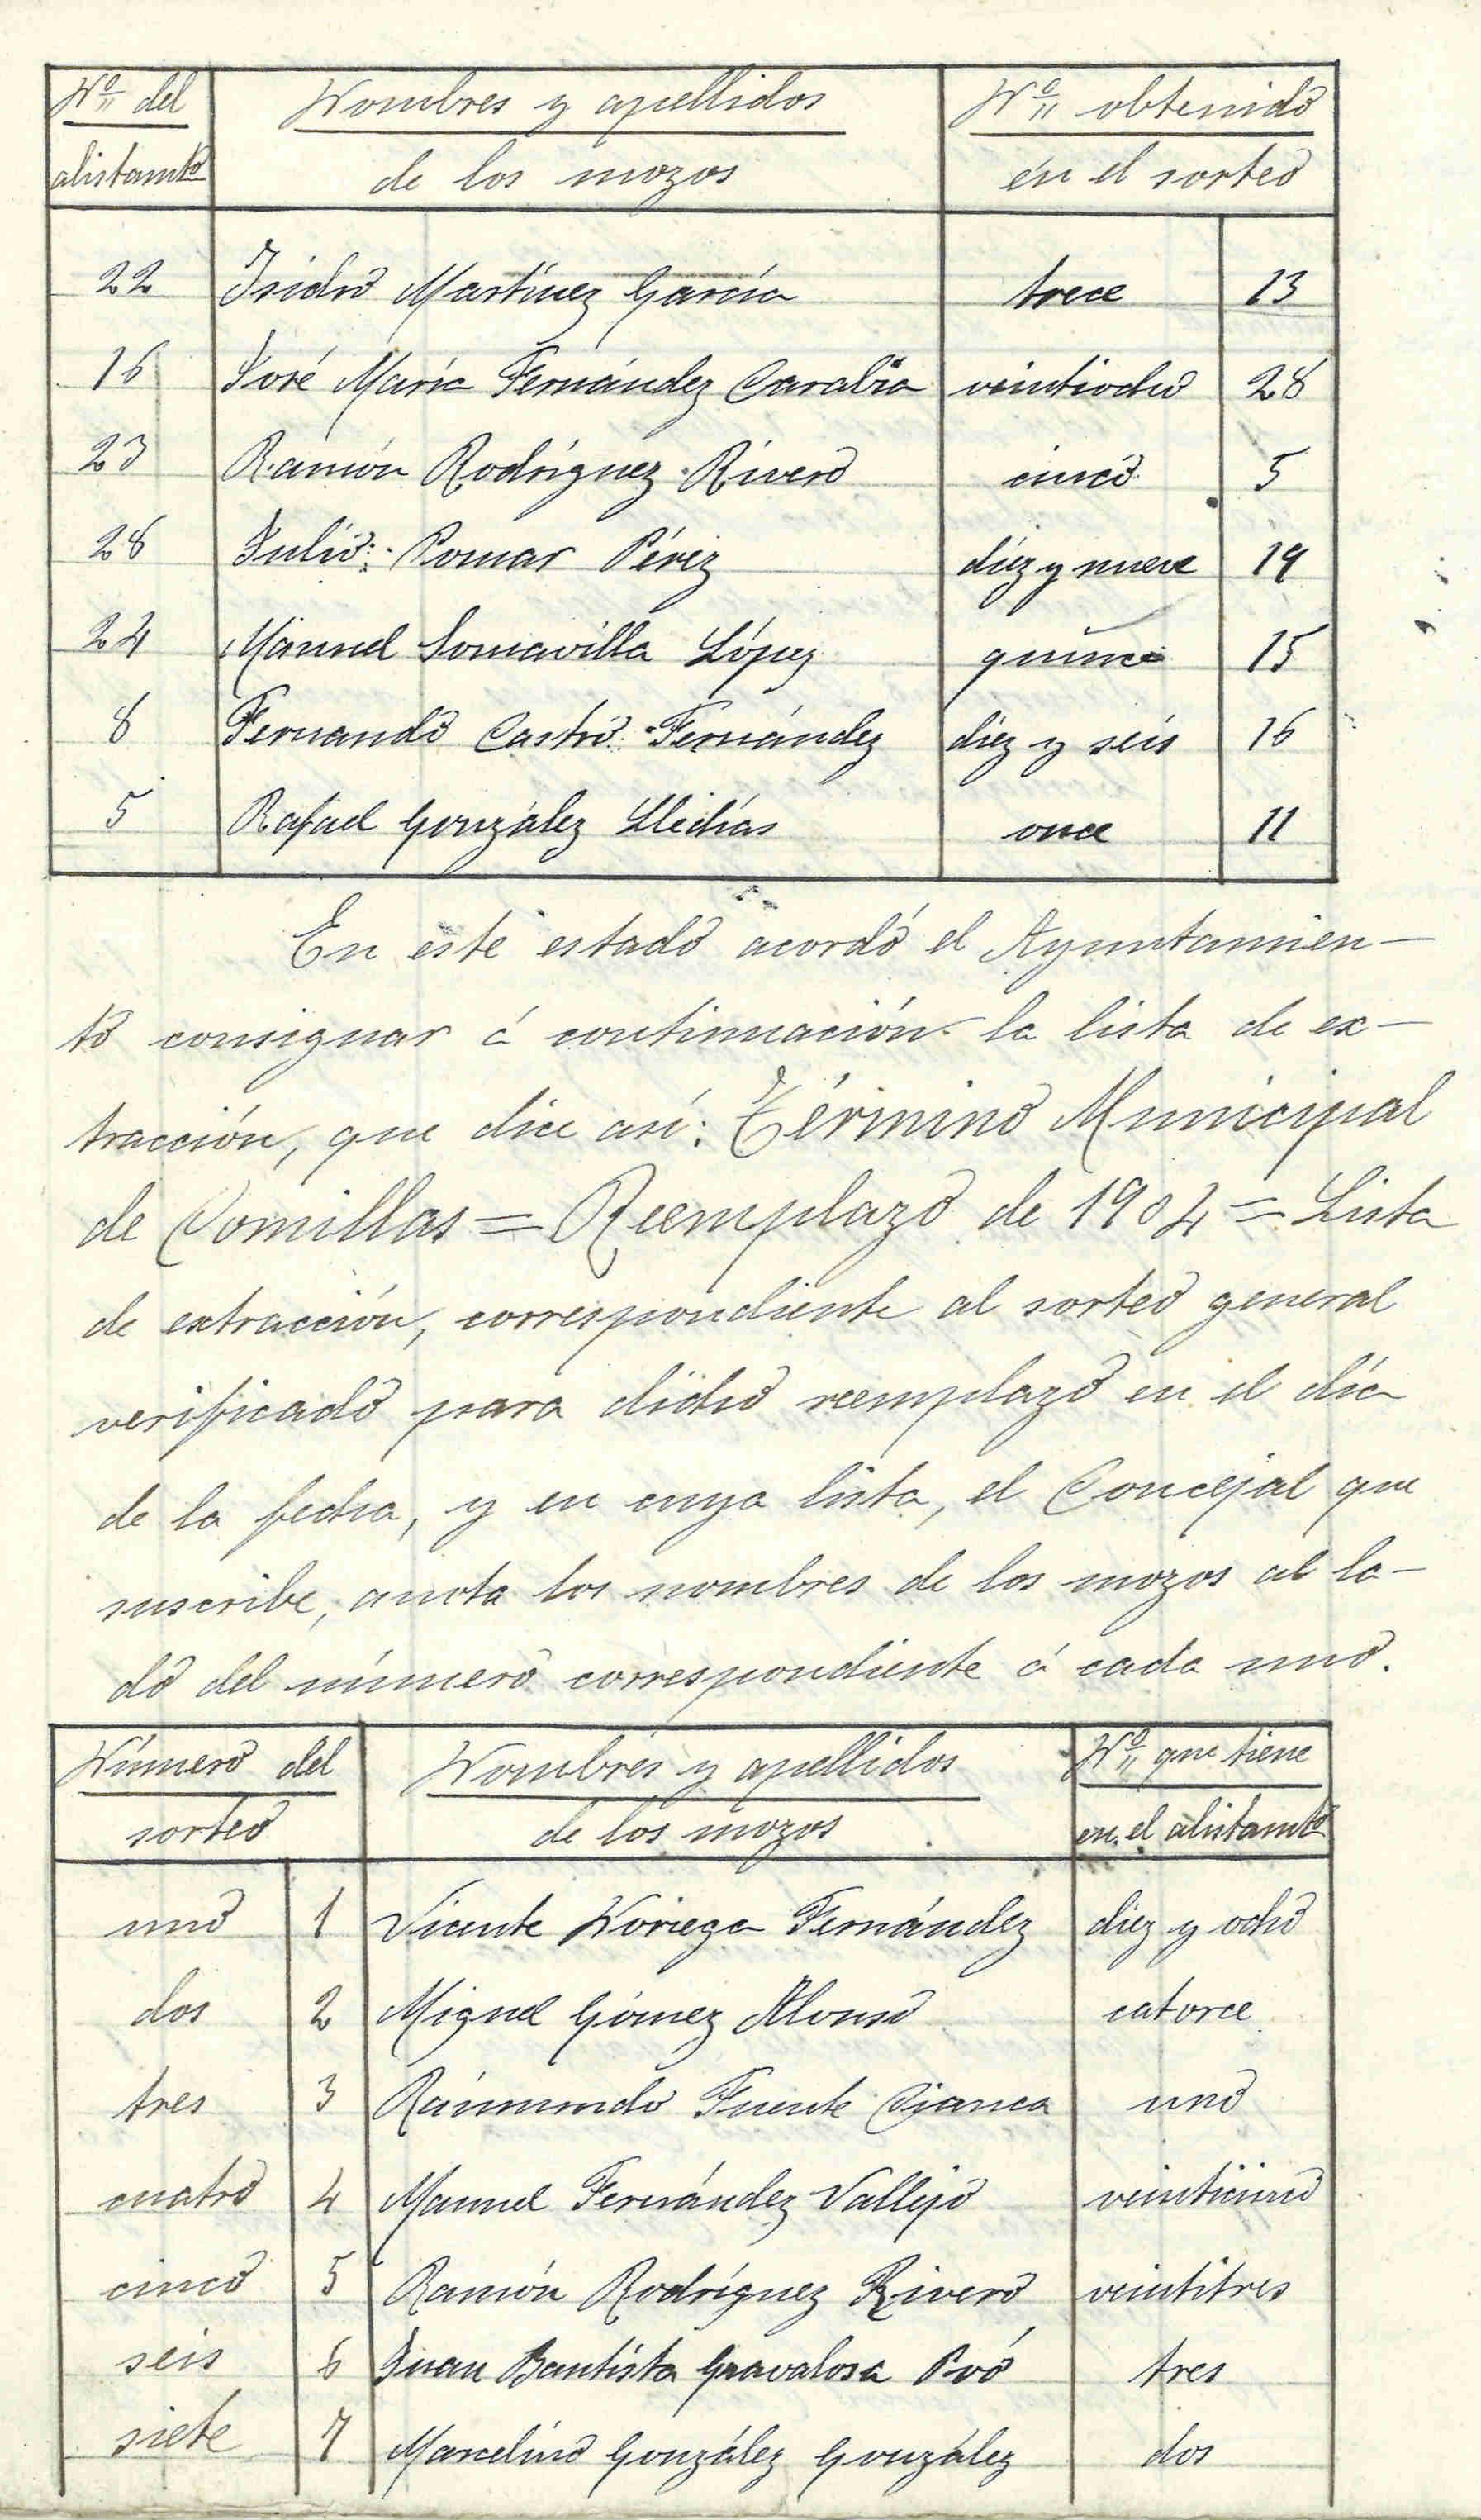 Nº del Nombres y apellidos Nº obtenido
alistamto de los mozos en el sorteo
22 Isidro Martínez García trece 13
16 José María Fernández Carabia veintiocho 28
23 Ramón Rodríguez Rivero cinco 5
28 Julio Pomar Pérez diez y nueve 19
24 Manuel Somavilla López quince 15
8 Fernando Castro Fernández diez y seis 16
5 Rafael González Llecías once 11
En este estado acordó el Ayuntamien-
to consignar á continuación la lista de ex-
tracción, que dice así: Término Municipal
de Comillas = Reemplazo de 1904 = Lista
de extracción, correspondiente al sorteo general
verificado para dicho reemplazo en el día
de la fecha, y en cuya lista, el Concejal que
suscribe, anota los nombres de los mozos al la-
do del número correspondiente á cada uno.
Número del Nombres y apellidos Nº que tiene
sorteo de los mozos en el alistamto
uno 1 Vicente Noriega Fernández diez y ocho
dos 2 Miguel Gómez Alonso catorce
tres 3 Raimundo Fuente Cianca uno
cuatro 4 Manuel Fernández Vallejo veinticinco
cinco 5 Ramón Rodríguez Rivero veintitres
seis 6 Juan Bautista Gravalosa Poó tres
siete 7 Marcelino González González dos